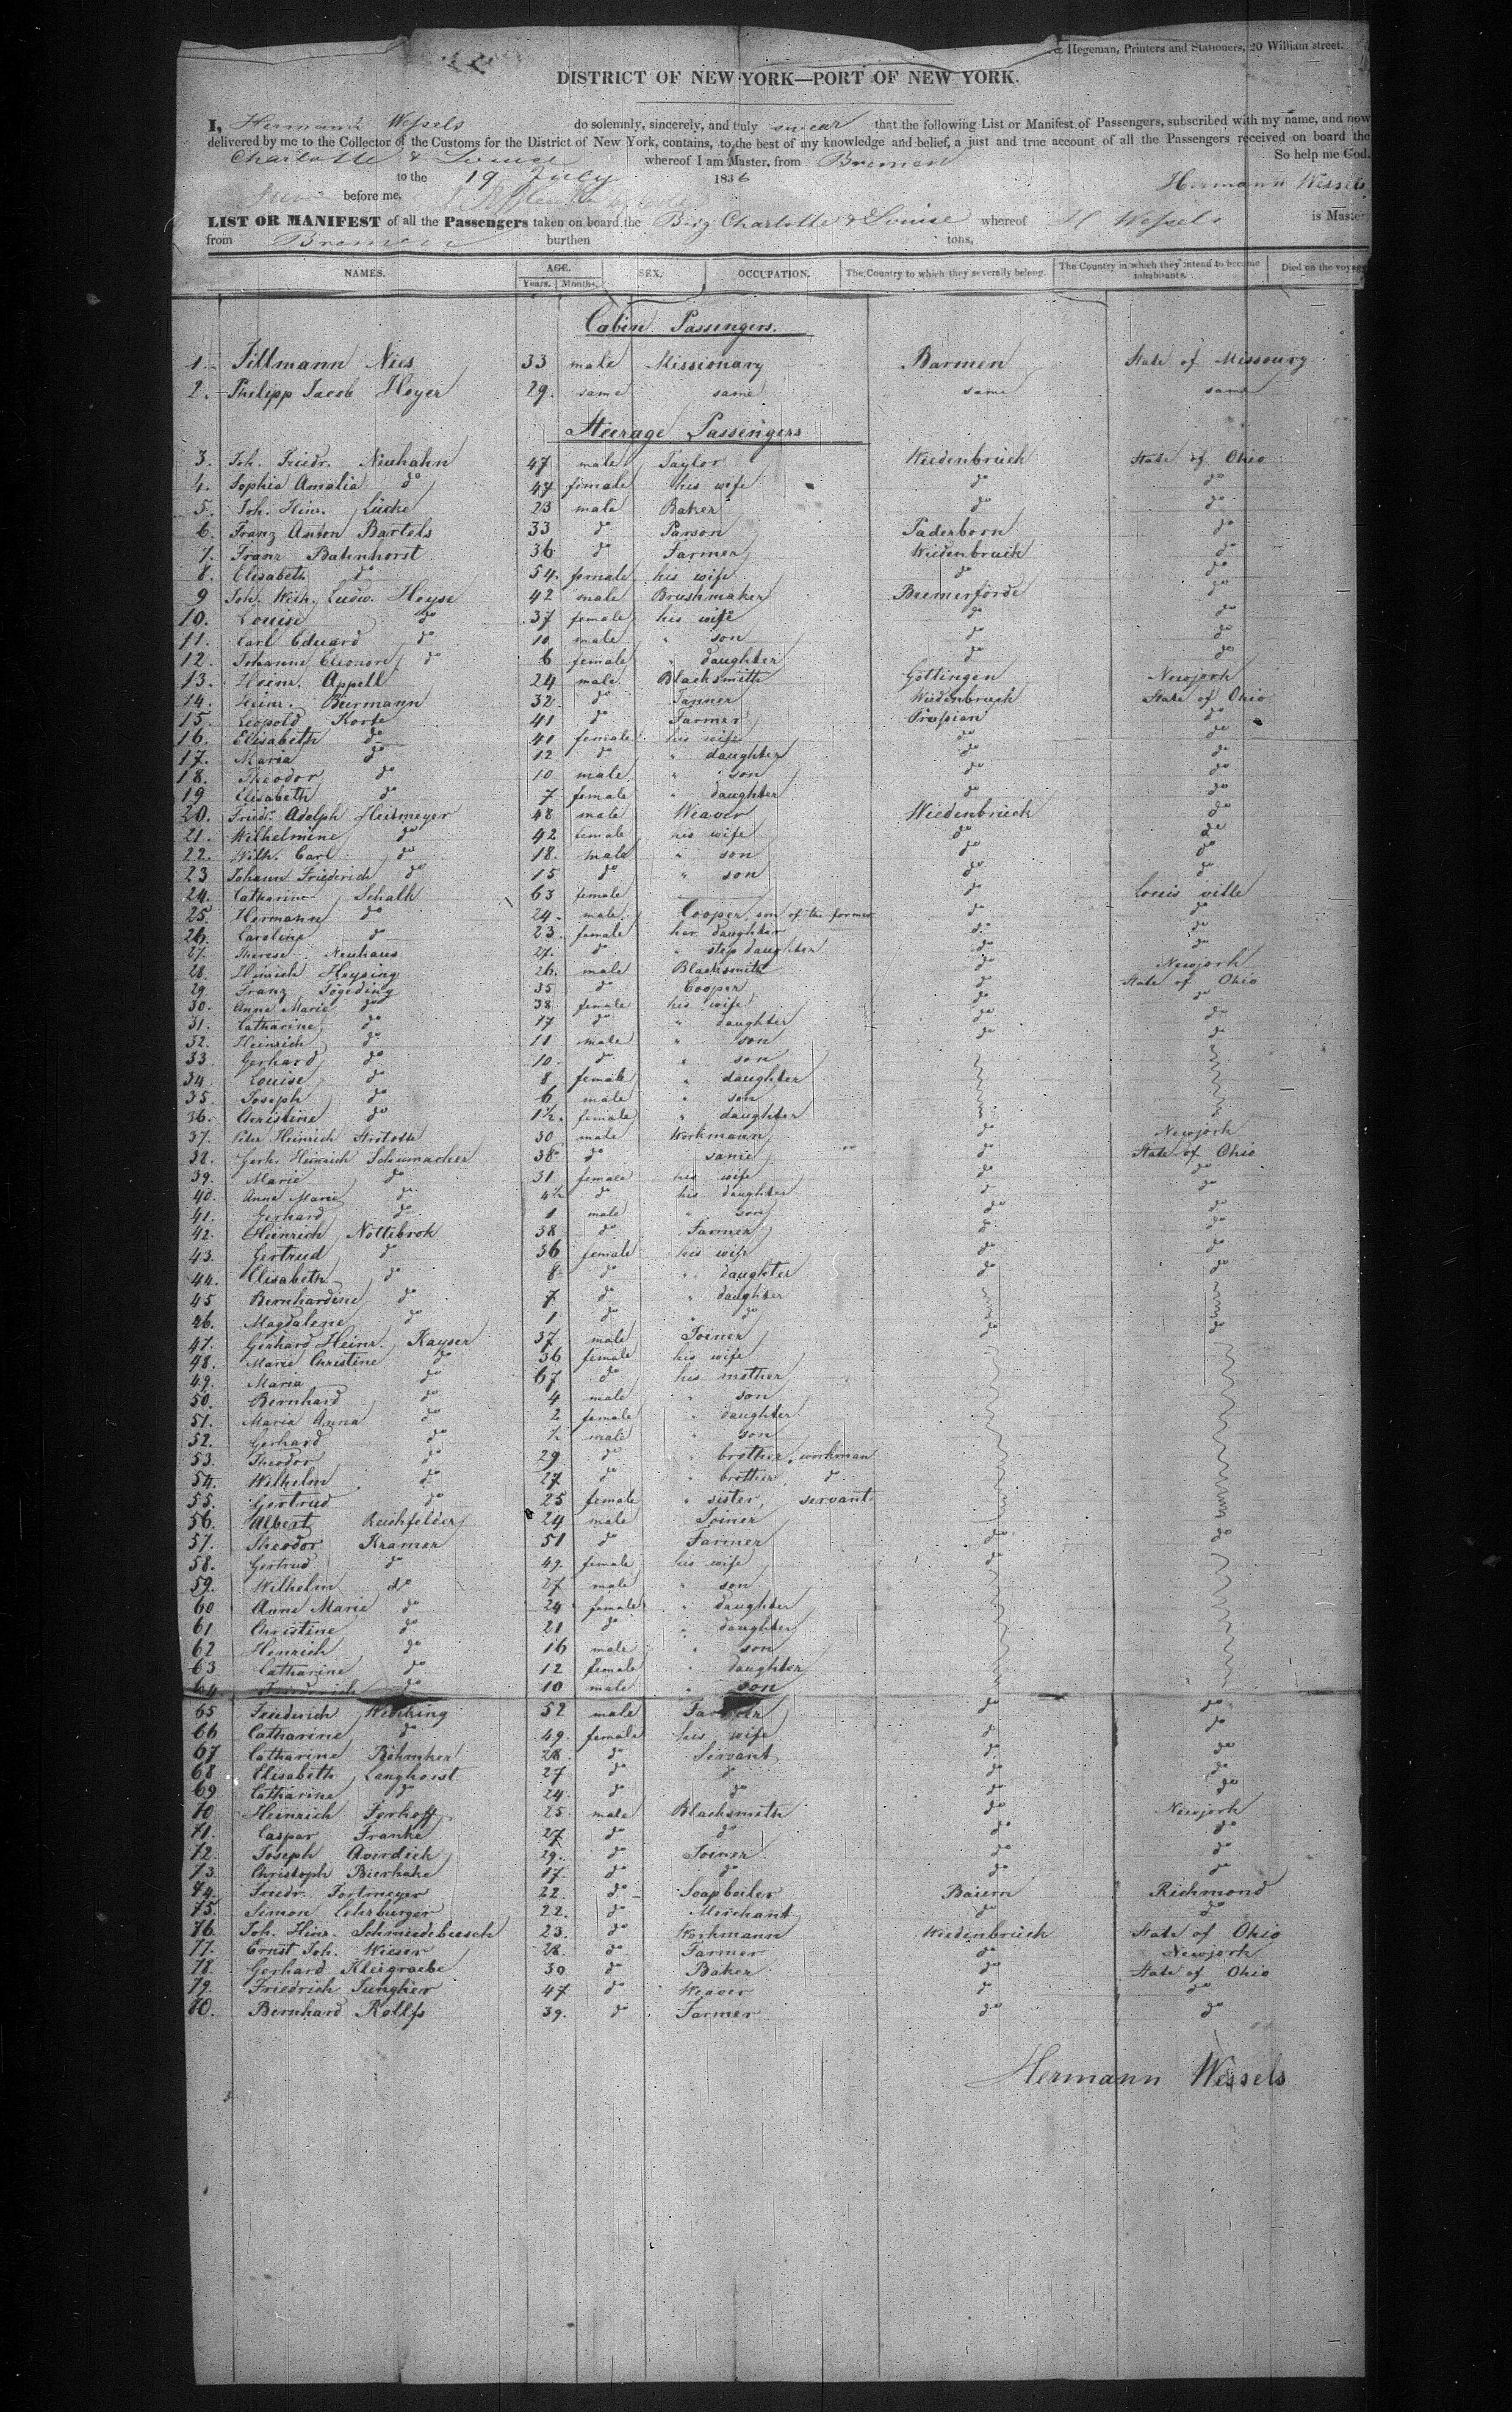 & Hegeman, Printers and Stationers, 20 William street.
DISTRICT OF NEW YORK—PORT OF NEW YORK.
I, Hermann Wessels do solemnly, sincerely, and truly swear that the following List or Manifest of Passengers, subscribed with my name, and now
delivered by me to the Collector of the Customs for the District of New York, contains, to the best of my knowledge and belief, a just and true account of all the Passengers received on board the
Charlotte & Louise whereof I am Master, from Bremen So help me God.
to the 19 July 1836 Hermann Wessels
before me,
LIST OR MANIFEST of all the Passengers taken on board the Brig Charlotte & Louise whereof H Wessels is Master
from Bremen burthen tons,
NAMES. AGE. SEX, OCCUPATION. The Country to which they severally belong. The Country in which they intend to become inhabitants. Died on the voyage
Years. Months.
Cabin Passengers.
1. Tillmann Nies 33 male Missionary Barmen State of Missoury
2. Philipp Jacob Heyer 29. same same same same
Steerage Passengers
3. Joh. Friedr. Niehahn 47 male Taylor Wiedenbrück State of Ohio
4. Sophia Amalia do 47 female his wife do do
5. Joh. Heinr. Lücke 23 male Baker do do
6. Franz Anton Bartels 33 do Parson Paderborn do
7. Franz Batenhorst 36 do Farmer Wiedenbrück do
8. Elisabeth do 54. female his wife do do
9 Joh. Wilh. Ludw. Heyse 42 male Brushmaker Bremerförde do
10. Louise do 37 female his wife do do
11. Carl Eduard do 10 male " son do do
12. Johanne Eleonore do 6 female " daughter do do
13. Heinr. Appell 24 male Blacksmith Göttingen Newjork
14. Heinr. Biermann 32 do Tanner Wiedenbrück State of Ohio
15. Leopold Korte 41 do Farmer Prussian do
16. Elisabeth do 41 female his wife do do
17. Maria do 12 do " daughter do do
18. Theodor do 10 male " son do do
19 Elisabeth do 7 female " daughter do do
20. Friedr. Adolph Heitmeyer 48 male Weaver Wiedenbrück do
21. Wilhelmine do 42 female his wife do do
22. Wilh. Carl do 18. male " son do do
23 Johann Friederich do 15 do " son do do
24. Catharine Schalk 63 female do Louis ville
25. Hermann do 24. male Cooper, son of the former do do
26. Caroline do 23. female her daughter do do
27. Therese Neuhaus 27. do " step daughter do do
28. Heinrich Heysing 26. male Blacksmith do Newjork
29. Franz Tögeding 35 do Cooper do State of Ohio
30. Anne Marie do 38 female his wife do do
31. Catharine do 17 do " daughter do do
32. Heinrich do 11 male " son do do
33. Gerhard do 10. do " son
34. Louise do 8 female " daughter
35. Joseph do 6 male " son
36. Christine do 1½. female " daughter
37. Peter Heinrich 30 male Workmann do Newjork
38. Gerh. Heinrich Schumacher 38 do same do State of Ohio
39. Marie do 31 female his wife do do
40. Anne Marie do 4½ do his daughter do do
41. Gerhard do 1 male " son do do
42. Heinrich Nottebrok 38 do Farmer do do
43. Gertrud do 36 female his wife do do
44. Elisabeth do 8 do " daughter do do
45 Bernhardine do 7 do " daughter
46. Magdalene do 1 do " do
47. Gerhard Heinr. Kayser 37 male Joiner do do
48. Marie Christine do 36 female his wife
49. Maria do 67 do his mother
50. Bernhard do 4 male " son
51. Maria Anna do 2 female " daughter
52. Gerhard do ½ male " son
53. Theodor do 29 do " brother, workman
54. Wilhelm do 27 do " brother do
55. Gertrud do 25 female " sister, servant
56. Albert Reichfelder 24 male Joiner
57. Theodor Kramer 51 do Farmer do do
58. Gertrud do 49. female his wife do
59. Wilhelm do 27 male " son
60 Anne Marie do 24 female " daughter
61 Christine do 21 do " daughter
62 Henrich do 16 male " son
63 Catharine do 12 female " daughter
64. Friederich do 10 male " son
65 Friederich Wecking 52 male Farmer do do
66 Catharine do 49. female his wife do do
67 Catharine Böhmker 28 do Servant do do
68 Elisabeth Langhorst 27 do do do do
69 Catharine do 24. do do do do
70 Heinrich Forhoff 25 male Blacksmith do Newjork
71. Caspar Franke 27 do do do do
72. Joseph Averdick 29. do Joiner do do
73. Christoph Bierhake 17. do do do do
74. Friedr. Fortmeyer 22. do Soapboiler Baiern Richmond
75. Simon Lehrburger 22. do Merchant do do
76. Joh. Heinr. Schmiedebusch 23. do Workmann Wiedenbrück State of Ohio
77. Ernst Joh. Wieser 28. do Farmer do Newjork
78. Gerhard Kleigraebe 30 do Baker do State of Ohio
79. Friedrich Jungker 47 do Weaver do do
80. Bernhard Rolfs 39. do Farmer do do
Hermann Wessels